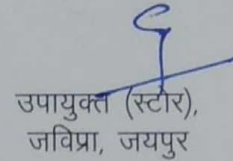 उपायुक्त (स्टोर),
जविप्रा, जयपुर